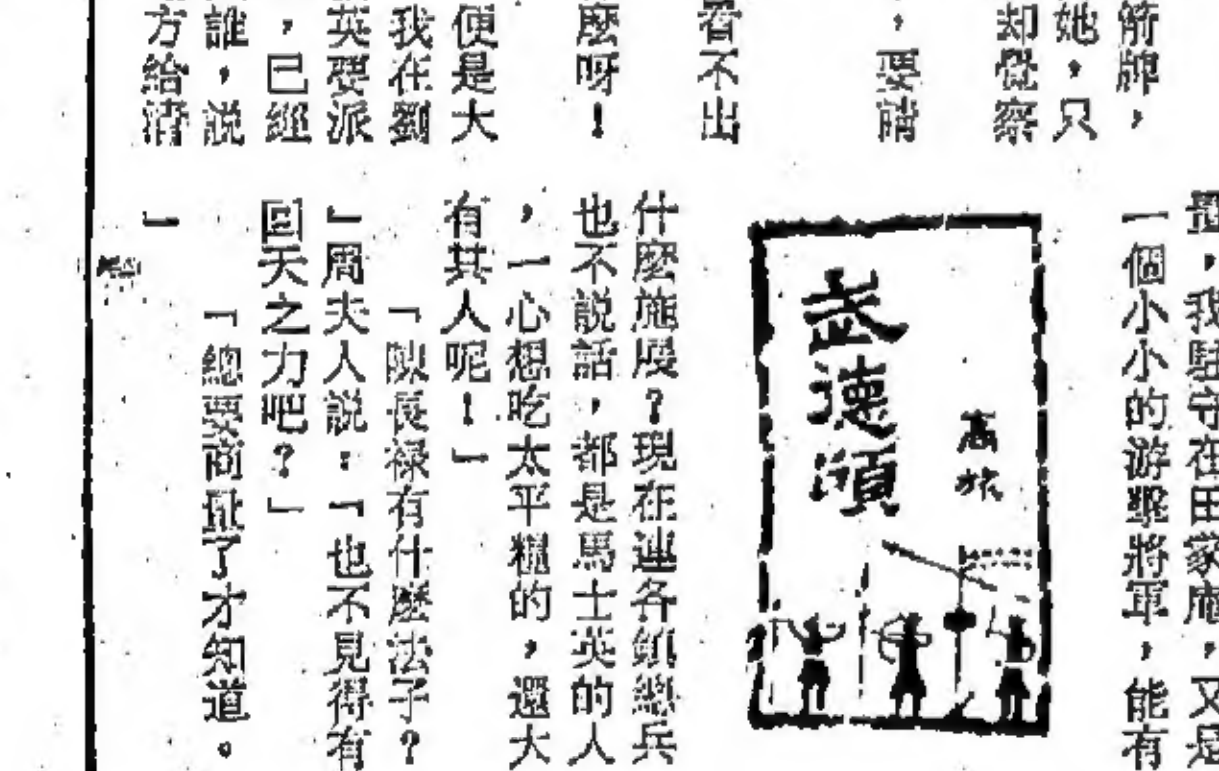 箭牌，
她，只
却覺察
，要請
看不出
麼呀！
便是大
我在劉
英要派
，已經
誰，説
方給清
，我駐守在田家庵，又是
一個小小的游擊將軍，能有
武德頌
高旅
什麼施展？現在連各鎮總兵
也不説話，都是馬士英的人
，一心想吃太平糧的，還大
有其人呢！」
「陳長禄有什麼法子？
」周夫人説：「也不見得有
回天之力吧？」
「總要商量了才知道。
」